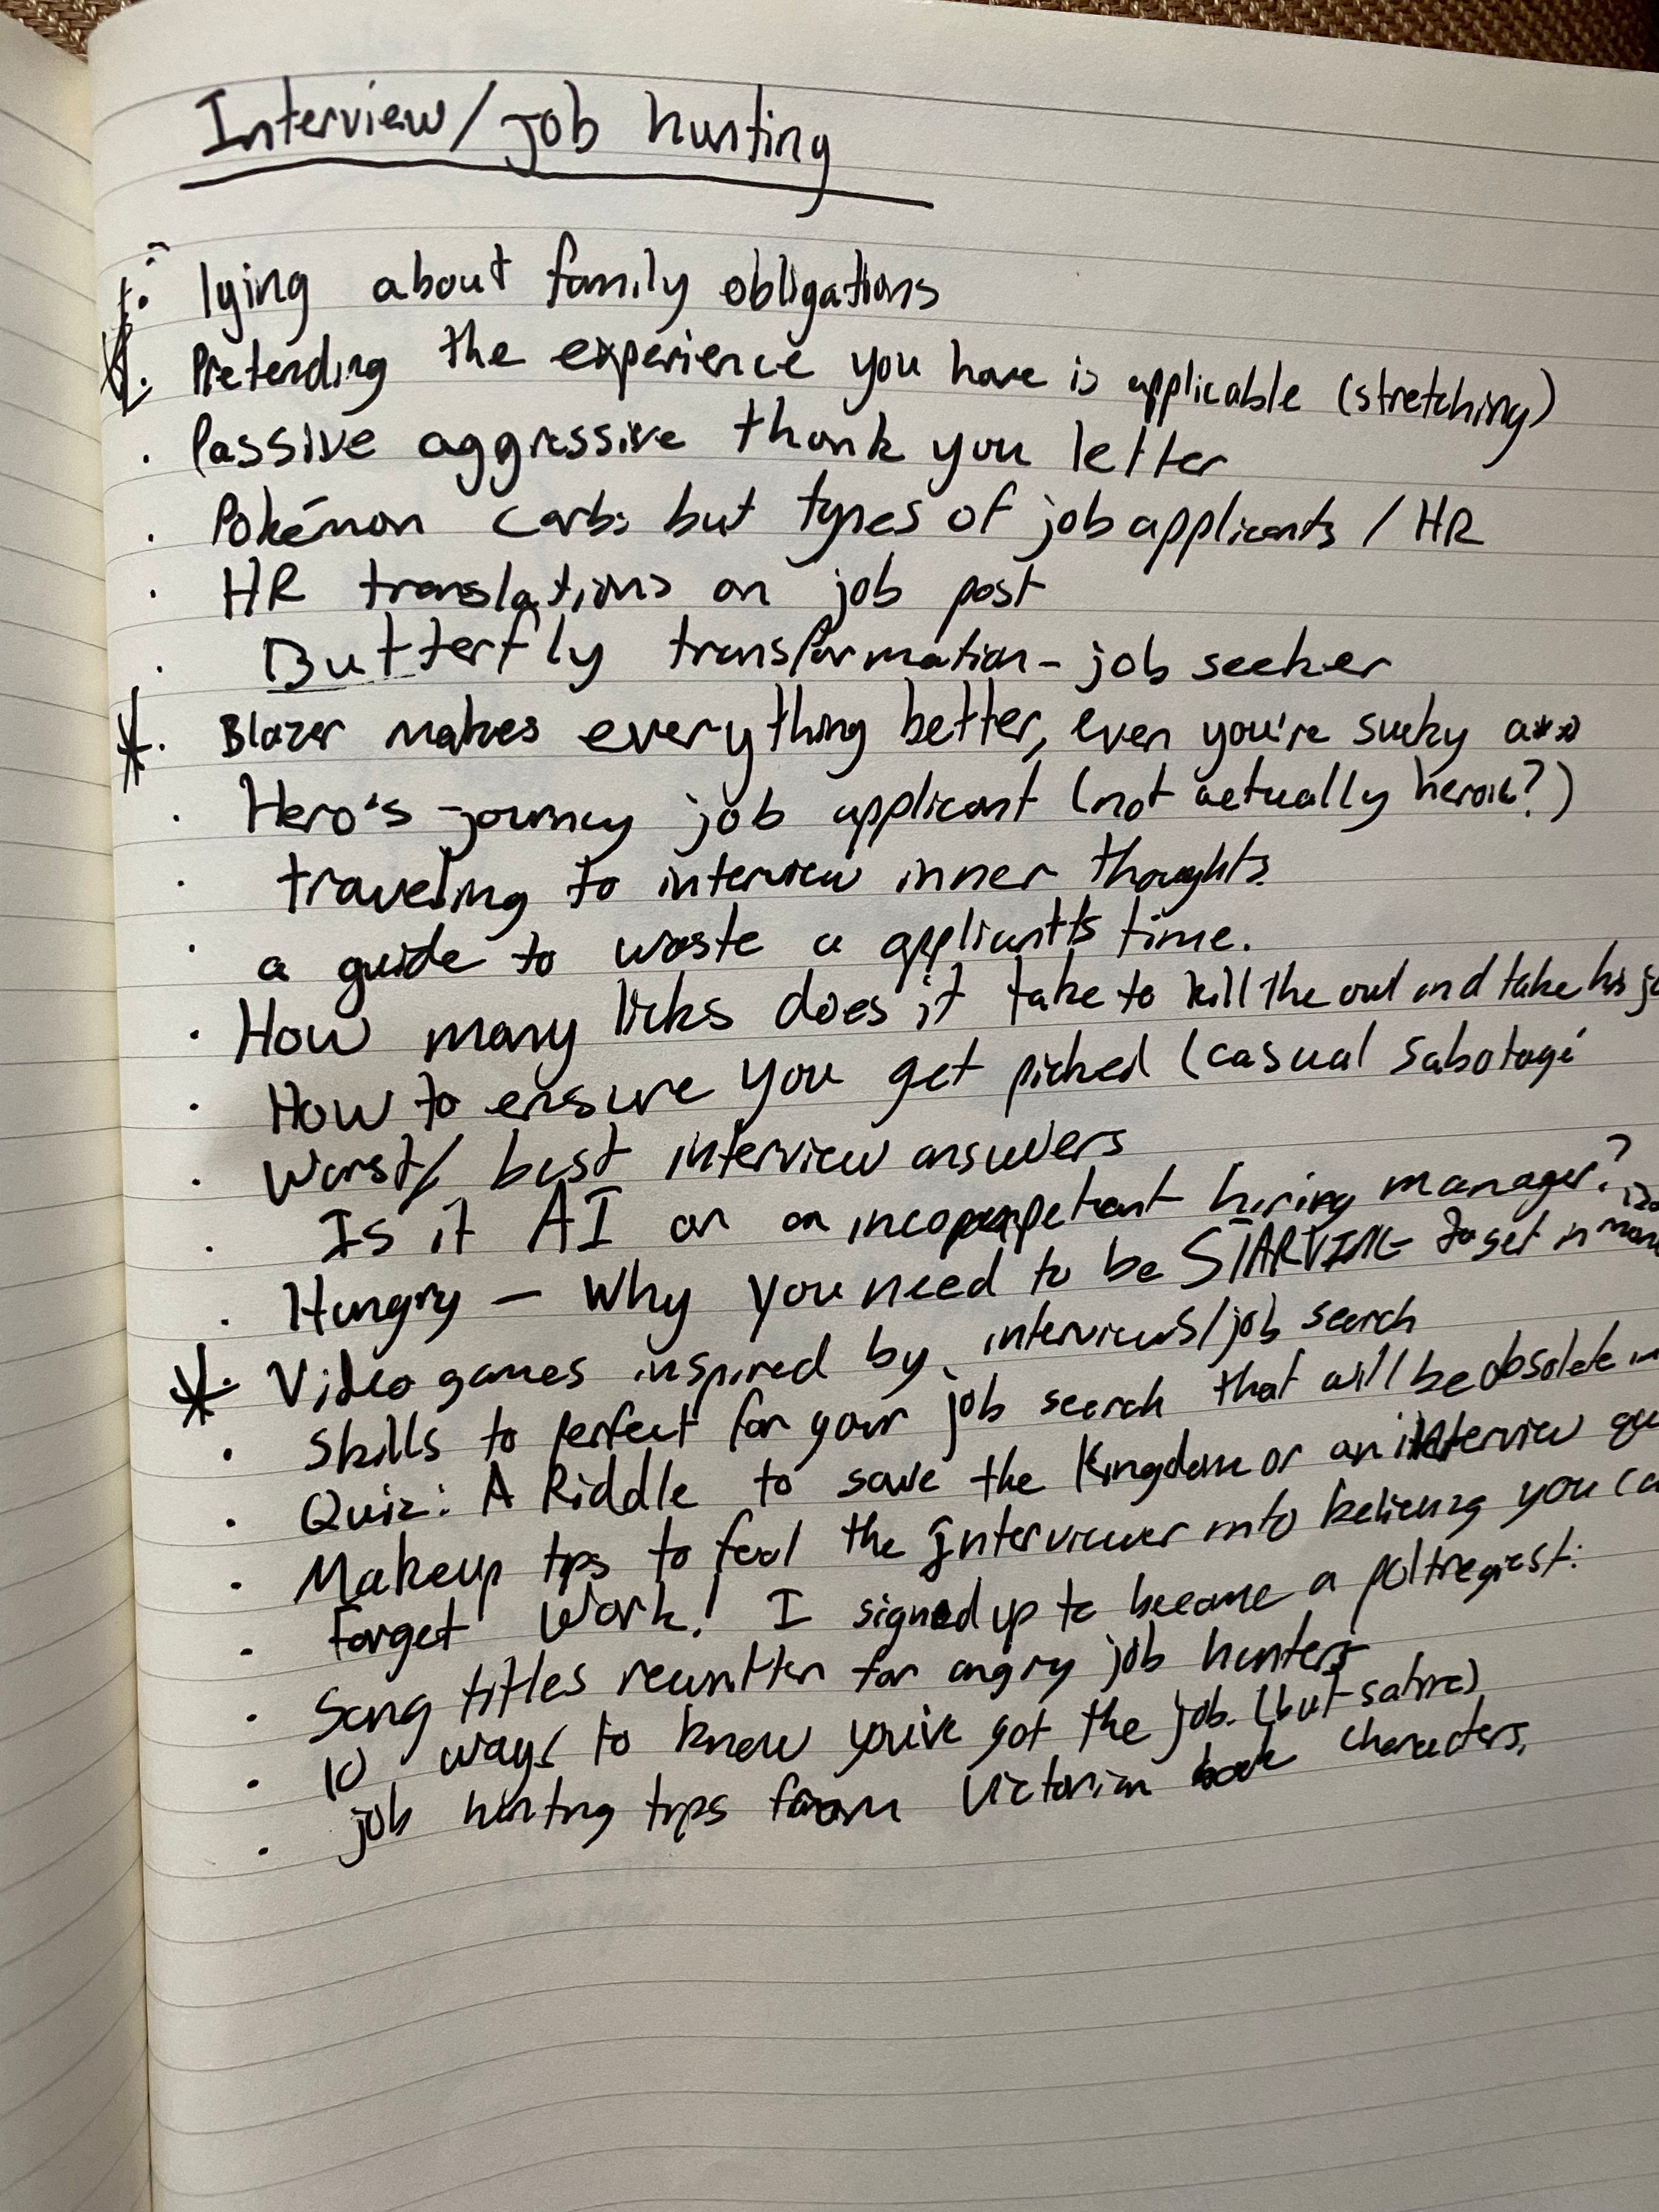 Interview/job hunting
· lying about family obligations
· Pretending the experience you have is applicable (stretching)
· Passive aggressive thank you letter
· Pokémon carbs but types of job applicants / HR
· HR translations on job post
· Butterfly transformation - job seeker
*· Blazer makes everything better, even you're sucky a**
· Hero's journey job applicant (not actually heroic?)
· traveling to interview inner thoughts.
· a guide to waste a applicants time.
· How many licks does it take to kill the owl and take his jo
· How to ensure you get picked (casual sabotage
· Worst/ best interview answers
· Is it AI or an incompetent hiring manager?
· Hungry - Why you need to be STARVING to get in
*· Video games inspired by interviews/job search
· Skills to perfect for your job search that will be obsolete in
· Quiz: A Riddle to save the Kingdom or an interview qu
· Makeup tips to fool the Interviewer into believing you ca
· Forget Work! I signed up to become a poltregiest.
· Song titles rewritten for angry job hunters
· 10 ways to know you've got the job. (but satire)
· job hunting tips from Victorian book characters.